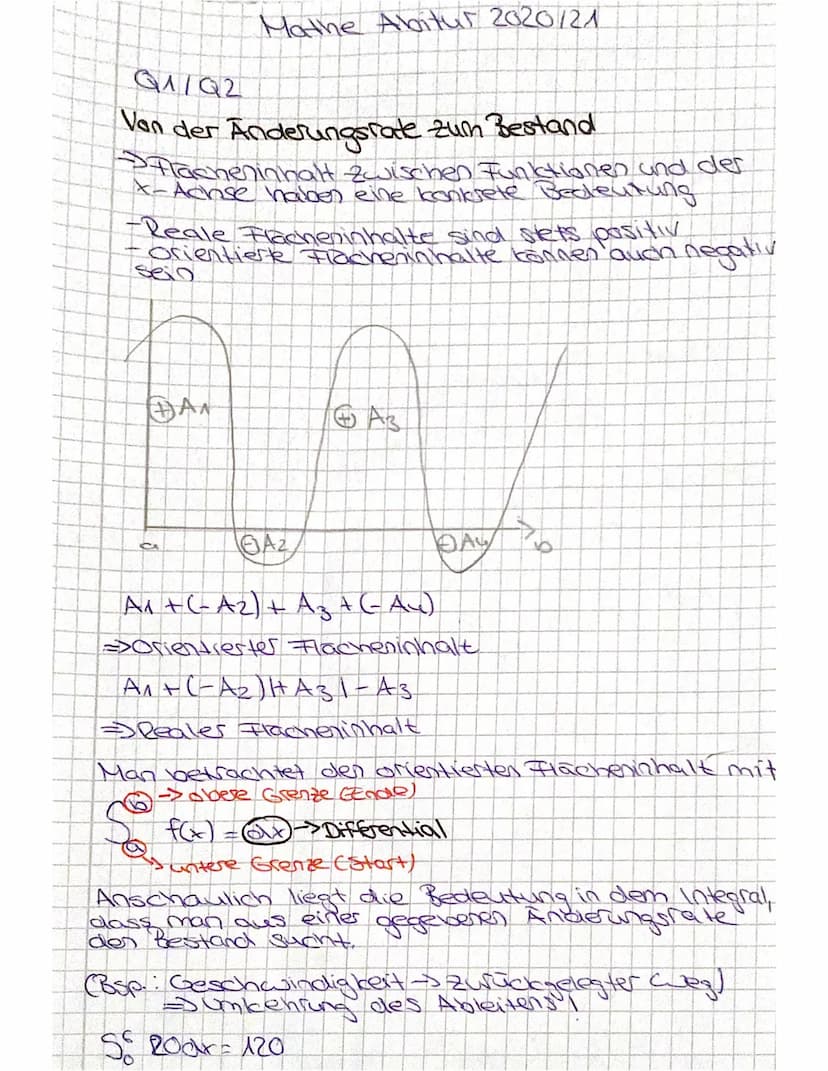 Mathe Abitur 2020/21
Q1/Q2
Von der Änderungsrate zum Bestand
→ Flächeninhalt zwischen Funktionen und der
x-Achse haben eine konkrete Bedeutung
- Reale Flächeninhalte sind stets positiv
- orientierte Flächeninhalte können auch negativ
sein
⊕ A1
⊕ A3
a
⊖ A2
⊖ A4
b
A1 + (-A2) + A3 + (-A4)
⇒ Orientierter Flächeninhalt
A1 + (-A2) |+ A3 | - A3
⇒ Reales Flächeninhalt
Man betrachtet den orientierten Flächeninhalt mit
b → obere Grenze (Ende)
∫ f(x) = dx → Differential
a ↳ untere Grenze (Start)
Anschaulich liegt die Bedeutung in dem Integral,
dass man aus einer gegebenen Änderungsrate
den Bestand sucht.
(Bsp.: Geschwindigkeit → zurückgelegter Weg)
⇒ Umkehrung des Ableitens!
∫₀⁶ 20dx = 120